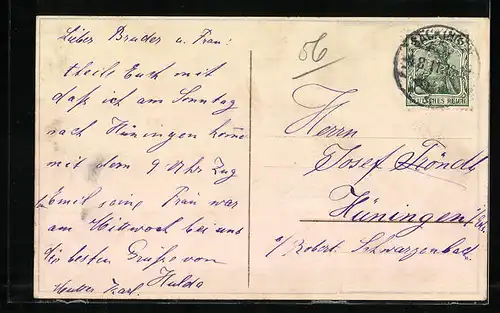 Lieber Bruder u. Frau:
theile Euch mit
daß ich am Sonntag
nach Hüningen komme
mit dem 9 Uhr Zug
Emil seine Frau war
am Mittwoch bei uns
die besten Grüße von
Mutter Karl. Hulda
56
SÄCKINGEN
DEUTSCHES REICH
Herrn
Josef Tröndle
Hüningen i/Els.
b/Robert Schwarzenbach